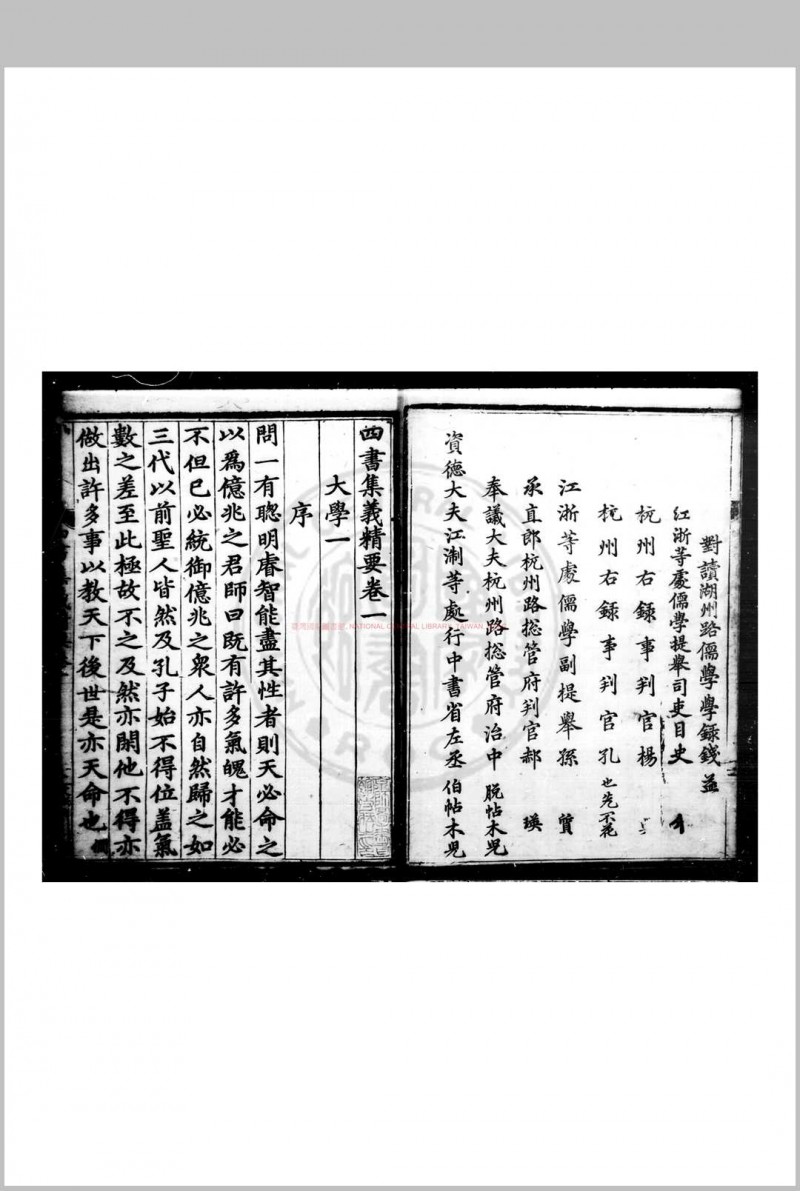 對讀湖州路儒學學錄錢 益
江浙等處儒學提舉司吏目史
杭州右錄事判官楊
杭州右錄事判官孔 也先不花
江浙等處儒學副提舉孫 質
承直郎杭州路捴管府判官郝 瑛
奉議大夫杭州路捴管府治中 脫帖木児
資德大夫江淛等處行中書省左丞 伯帖木児
四書集義精要卷一
大學一
序
問一有聰明睿智能盡其性者則天必命之
以爲億兆之君師曰既有許多氣魄才能必
不但已必統御億兆之衆人亦自然歸之如
三代以前聖人皆然及孔子始不得位盖氣
數之差至此極故不之及然亦閑他不得亦
做出許多事以教天下後世是亦天命也
NATIONAL CENTRAL LIBRARY, TAIWAN